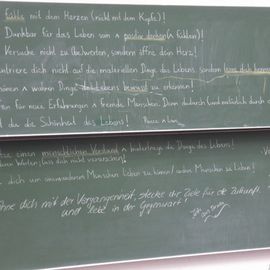 fühle mit dem Herzen (nicht mit dem Kopfe)!
Dankbar für das Leben sein ∧ positiv denken (∧ fühlen)!
Versuche nicht zu (be)werten, sondern öffne dein Herz!
ntriere dich nicht auf die materiellen Dinge des Lebens sondern
∧ wahren Dinge bewusst zu erkennen!
fen für neue Erfahrungen ∧ fremde Menschen. Denn dadurch
du die Schönheit des Lebens!
einen menschlichen Verstand ∧ hinterfrage die Dinge des Lebens!
deinen Werten, lass dich nicht verunsichern!
dich um einwandfreien Menschen Leben zu können! jeden Menschen zu Lieben!
öhne dich mit der Vergangenheit, stecke dir Ziele für die Zukunft.
und lebe in der Gegenwart!